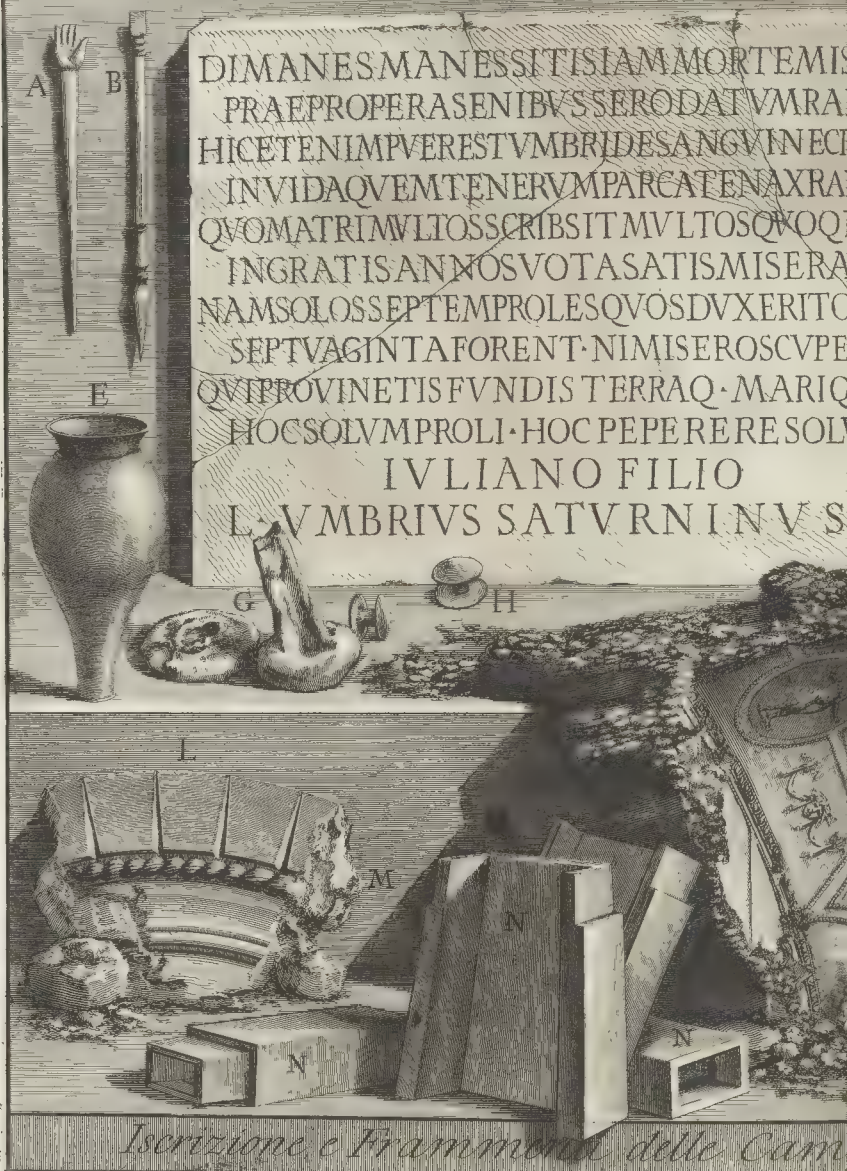 A B
DIMANESMANESSITISIAMMORTEMIS
PRAEPROPERASENIBVSSERODATVMRA
HICETENIMPVERESTVMBRIDESANGVINECR
INVIDAQVEMTENERVMPARCATENAXRA
QVOMATRIMVLTOSSCRIBSITMVLTOSQVOQ
INGRATISANNOSVOTASATISMISERA
NAMSOLOSSEPTEMPROLESQVOSDVXERITO
SEPTVAGINTAFORENT·NIMISEROSCVPE
QVIPROVINETISFVNDISTERRAQ·MARIQ
HOCSOLVMPROLI·HOCPEPERERESOLV
IVLIANO FILIO
L·VMBRIVS SATVRNINVS
E
G H
L
M
N
N
N
Iscrizione e Frammenti delle Cam